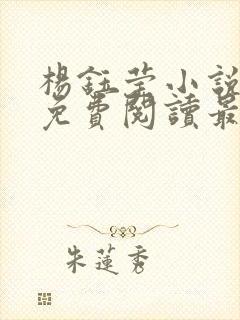 楊鈺瑩小說
免費閱讀最
朱蓮秀